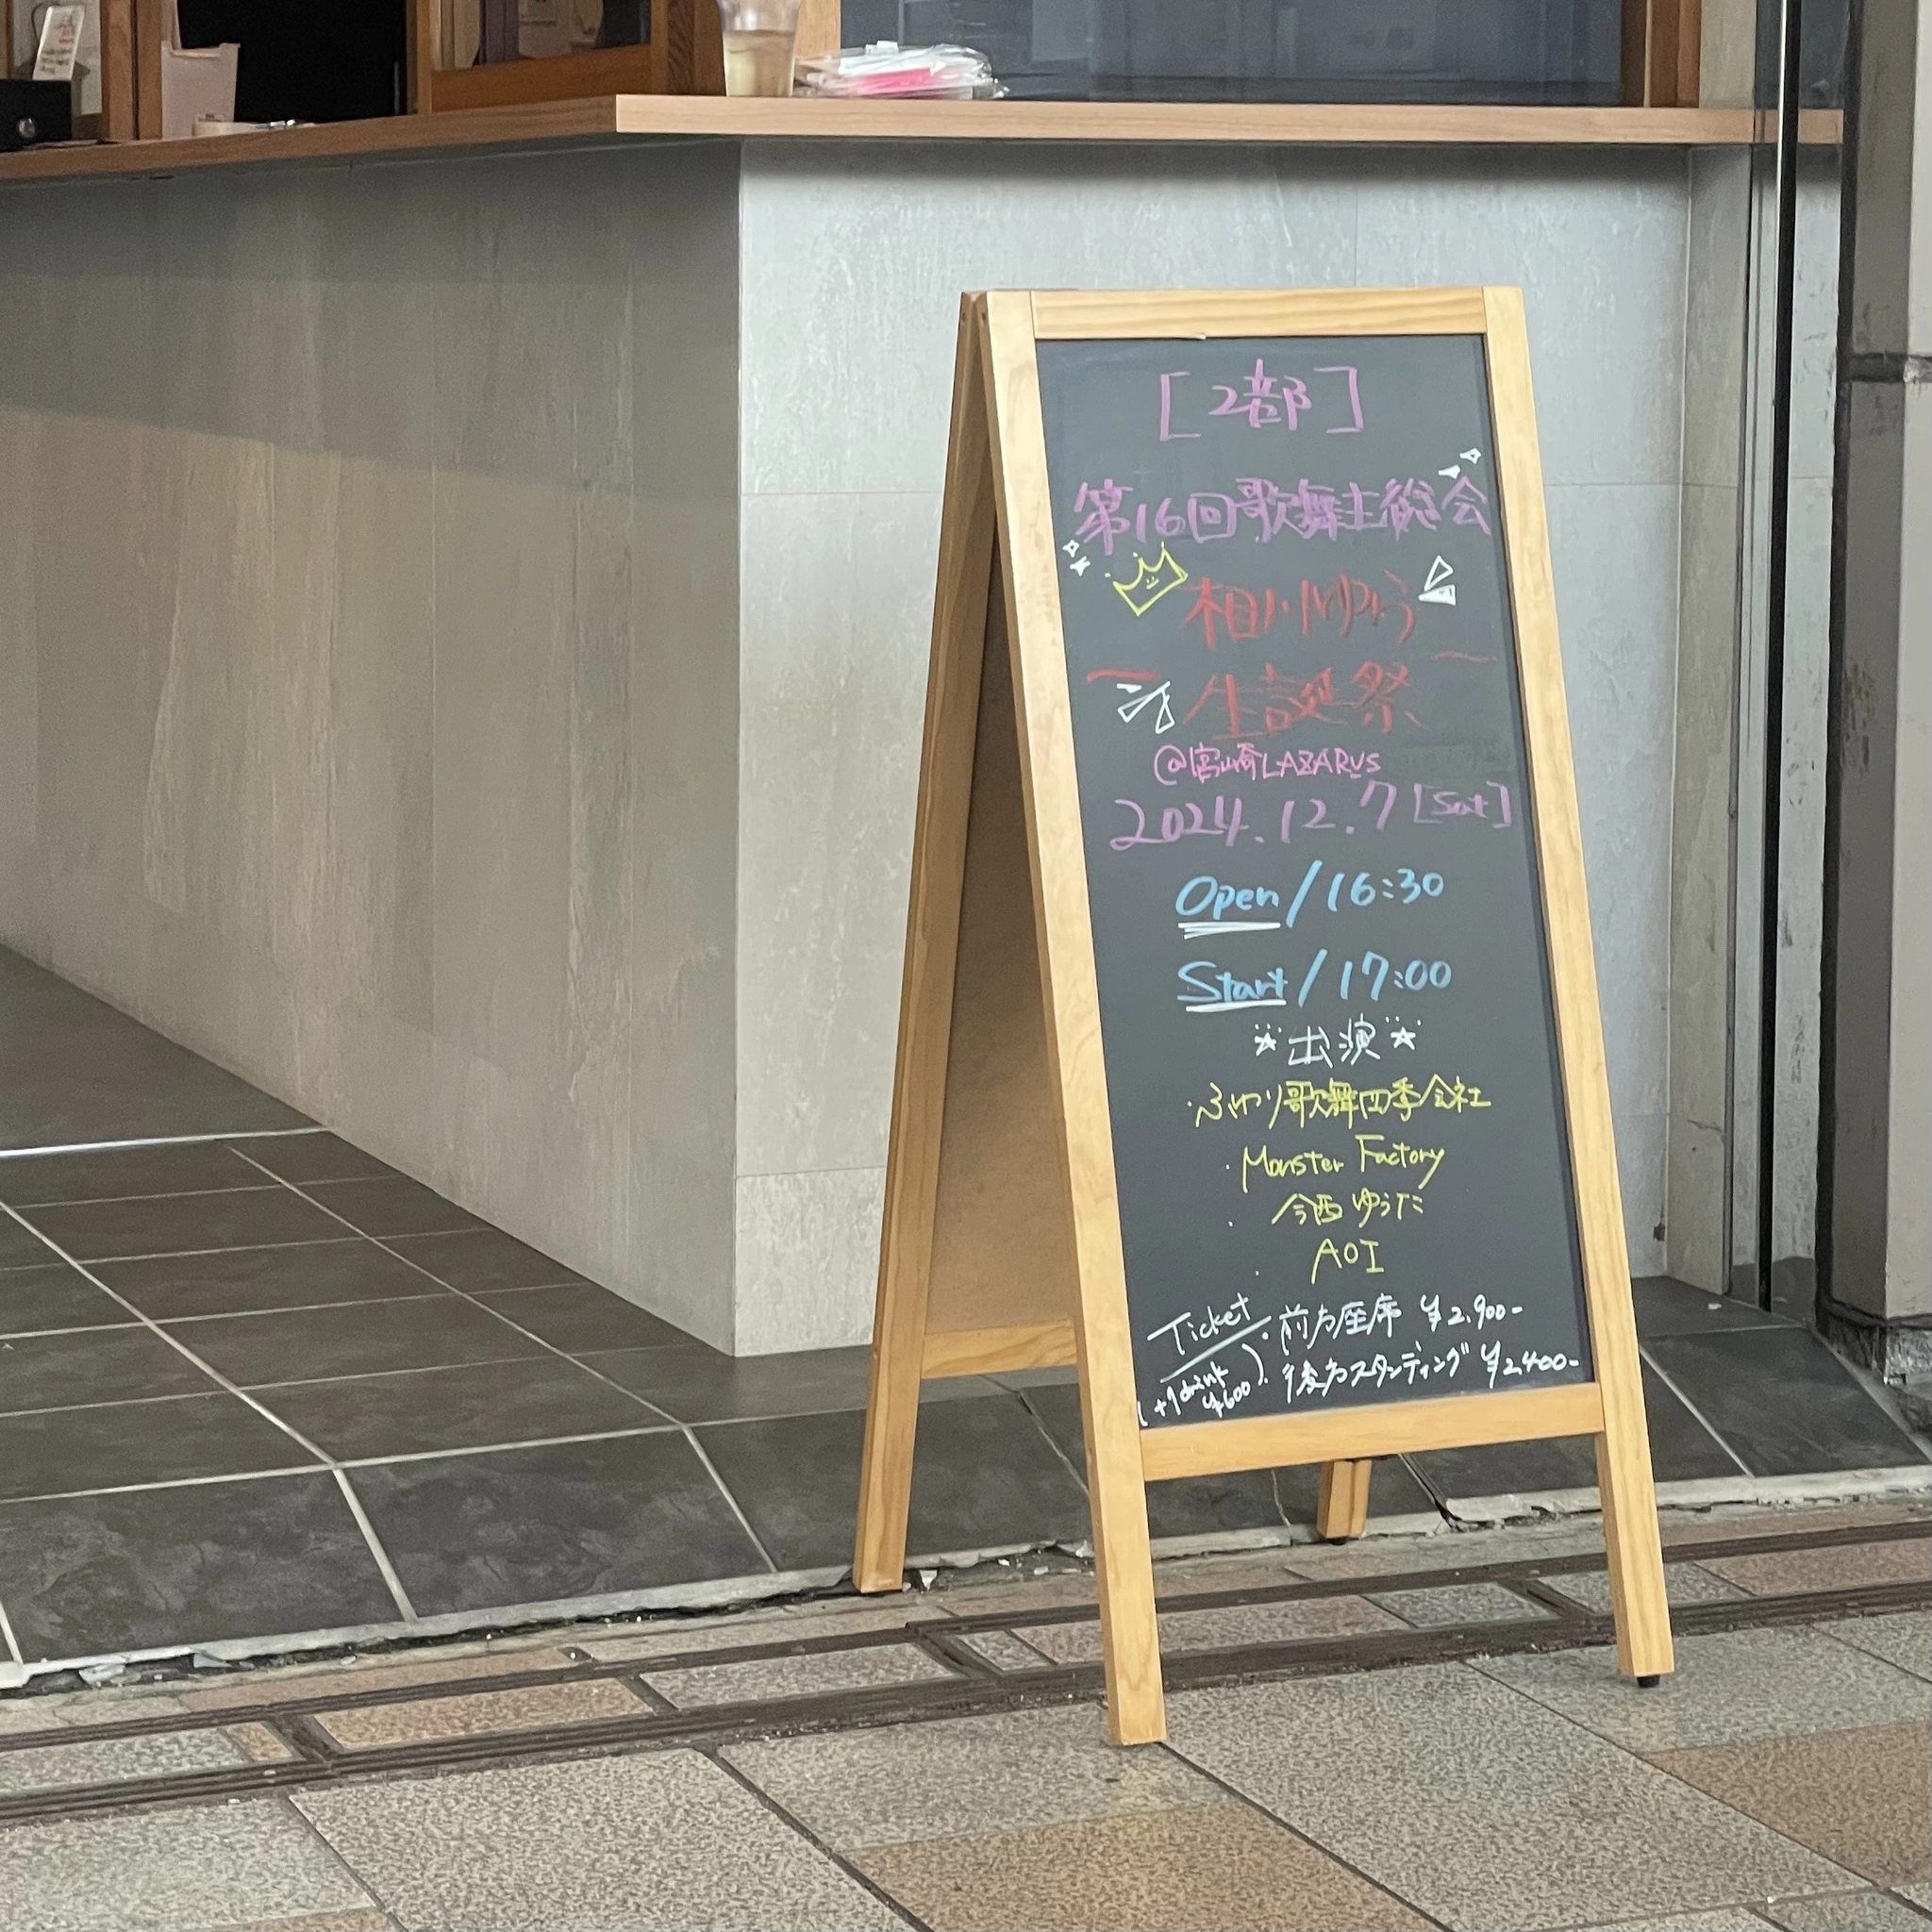 [2部]
第16回歌舞主総会
相川ゆう
生誕祭
@宮崎LAZARUS
2024.12.7[Sat]
Open/16:30
Start/17:00
出演
・ふわり歌舞四季会社
・Monster Factory
・今西ゆうだ
・AOI
Ticket ・前方座席 ¥2,900-
(+1drink ¥600) ・後方スタンディング ¥2,400-